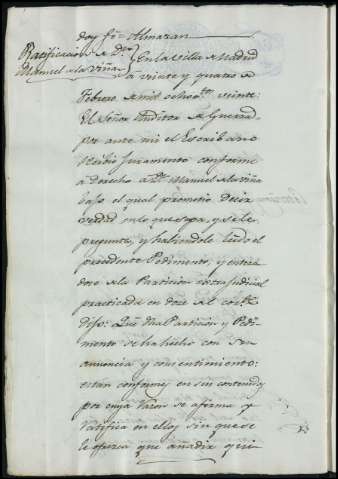 doy fe= Almazan
Ratificacion de Dn.
Manuel de la Viña
En la Villa de Madrid
a veinte y quatro de
Febrero de mil ochotos. veinte:
El Señor Auditor de Guerra
por ante mi el Escribano
recibio Juramento conforme
a derecho a Dn. Manuel de la Viña
bajo el qual prometio decir
verdad en lo que sepa, y se le
pregunte, y habiendole leido el
precedente Pedimento, y entera
dose de la Particion extrajudicial
practicada en doce del corrte.
dijo: Que dha Particion y Pedi-
mento se ha hecho con su
anuencia y consentimiento:
estan conformes en su contenido
por cuya razon se afirma y
ratifica en ellos sin que se
le ofrezca que añadir, qui